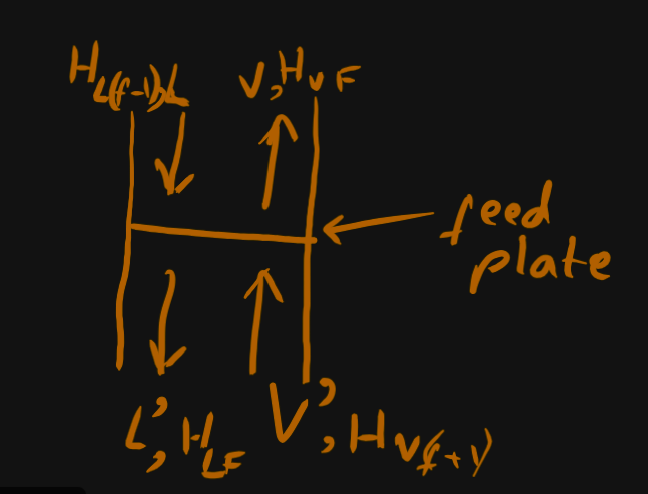 H_L(f-1), L
V, H_VF
feed
plate
L', H_LF
V', H_V(f+1)